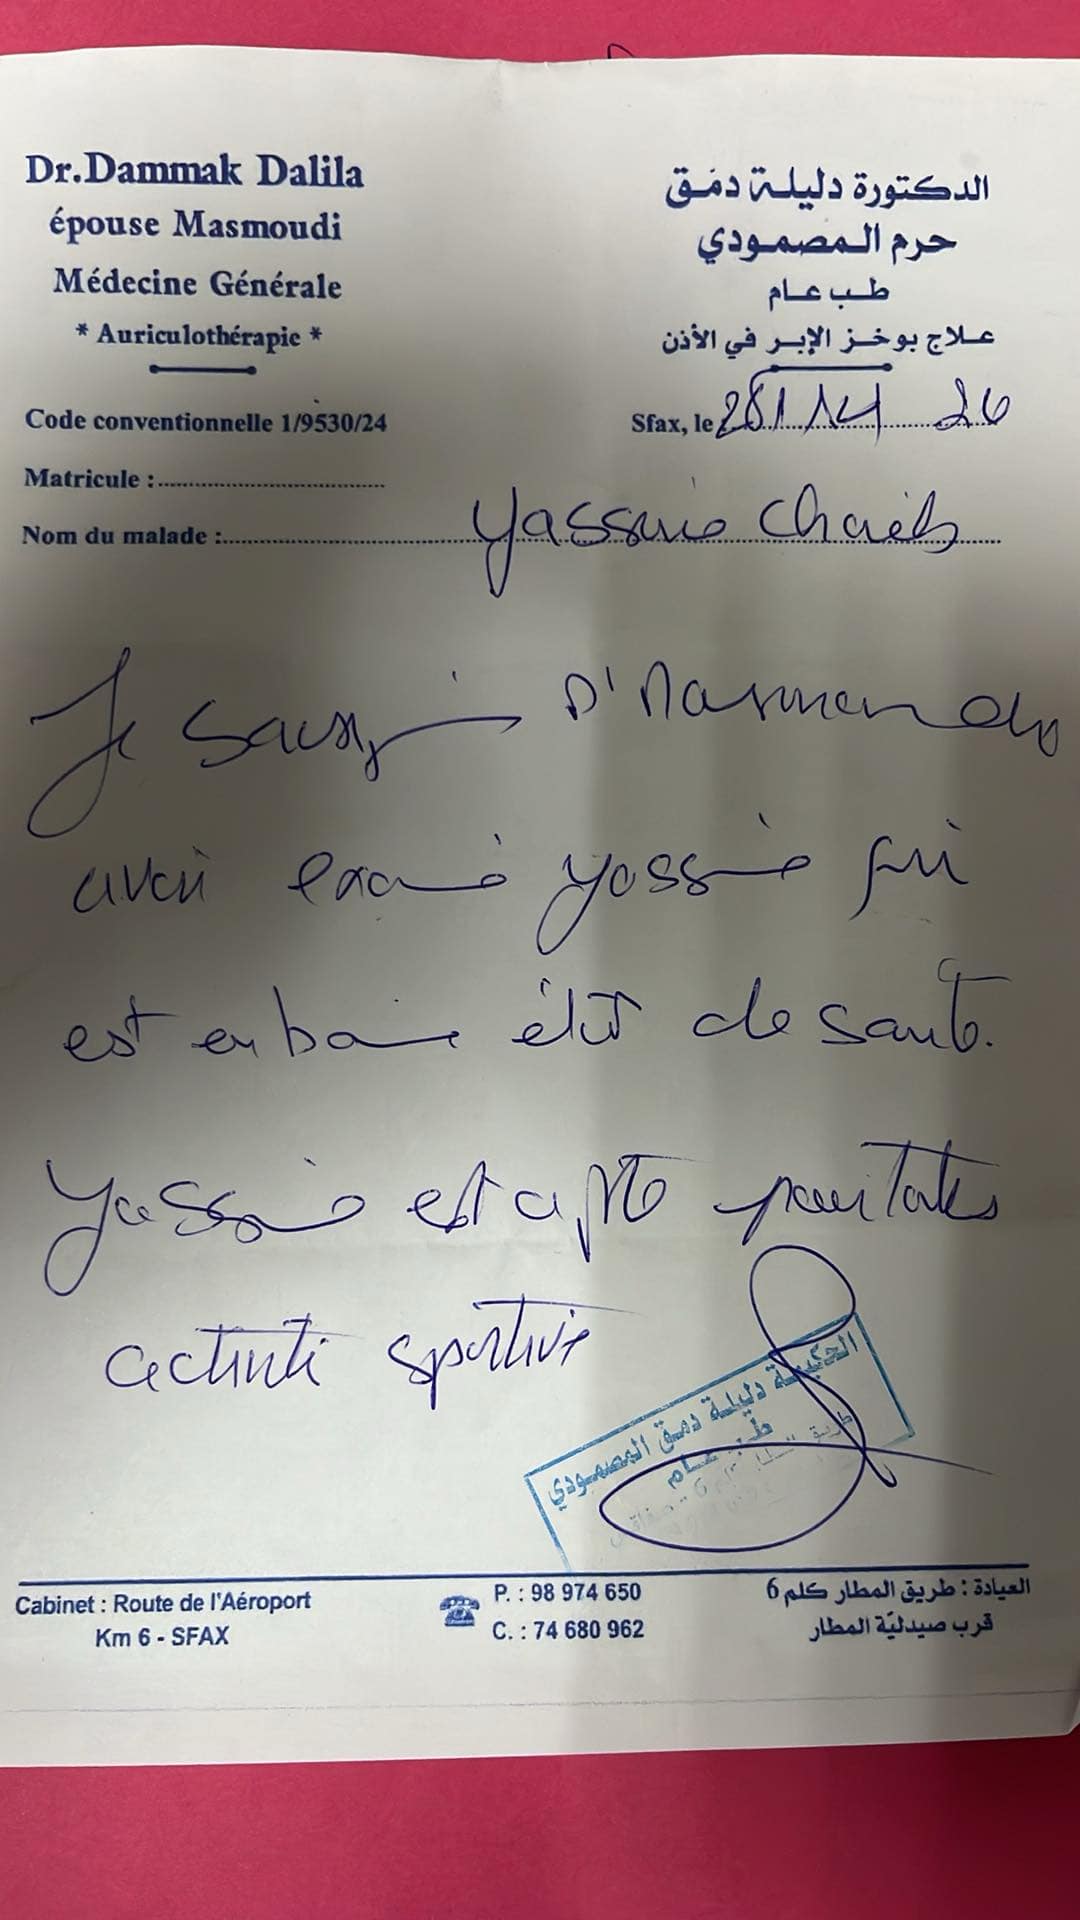 Dr.Dammak Dalila
épouse Masmoudi
Médecine Générale
* Auriculothérapie *
الدكتورة دليلة دمق
حرم المصمودي
طب عام
علاج بوخز الإبر في الأذن
Code conventionnelle 1/9530/24
Sfax, le 28/ 26
Matricule :
Nom du malade : Yassine Chaieb
Je Dr
avoir Yassine qui
est en état de santé.
Yassine est apte pour toutes
activité sportive
الحكيمة دليلة دمق المصمودي
طب عام
Cabinet : Route de l'Aéroport
Km 6 - SFAX
P. : 98 974 650
C. : 74 680 962
العيادة : طريق المطار كلم 6
قرب صيدليّة المطار